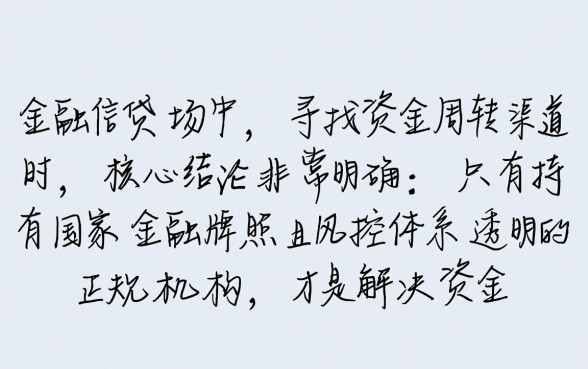 金融信贷场中，寻找资金周转渠道
时，核心结论非常明确：只有持
有国家金融牌照且风控体系透明的
正规机构，才是解决资金